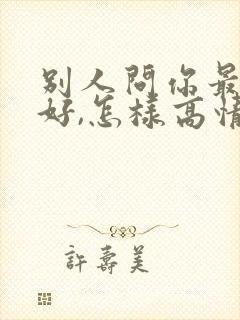 别人問你最
好,怎樣高情
許壽美